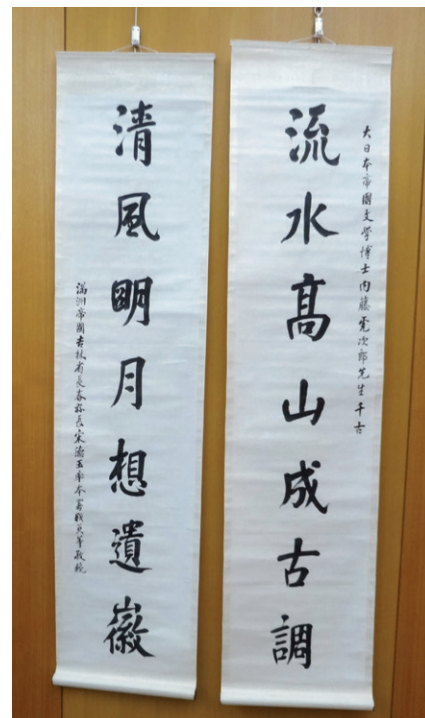 大日本帝國文學博士内藤虎次郎先生千古
流水高山成古調
清風明月想遺徽
滿洲帝國吉林省長春縣長宋德玉率本署職員等敬輓